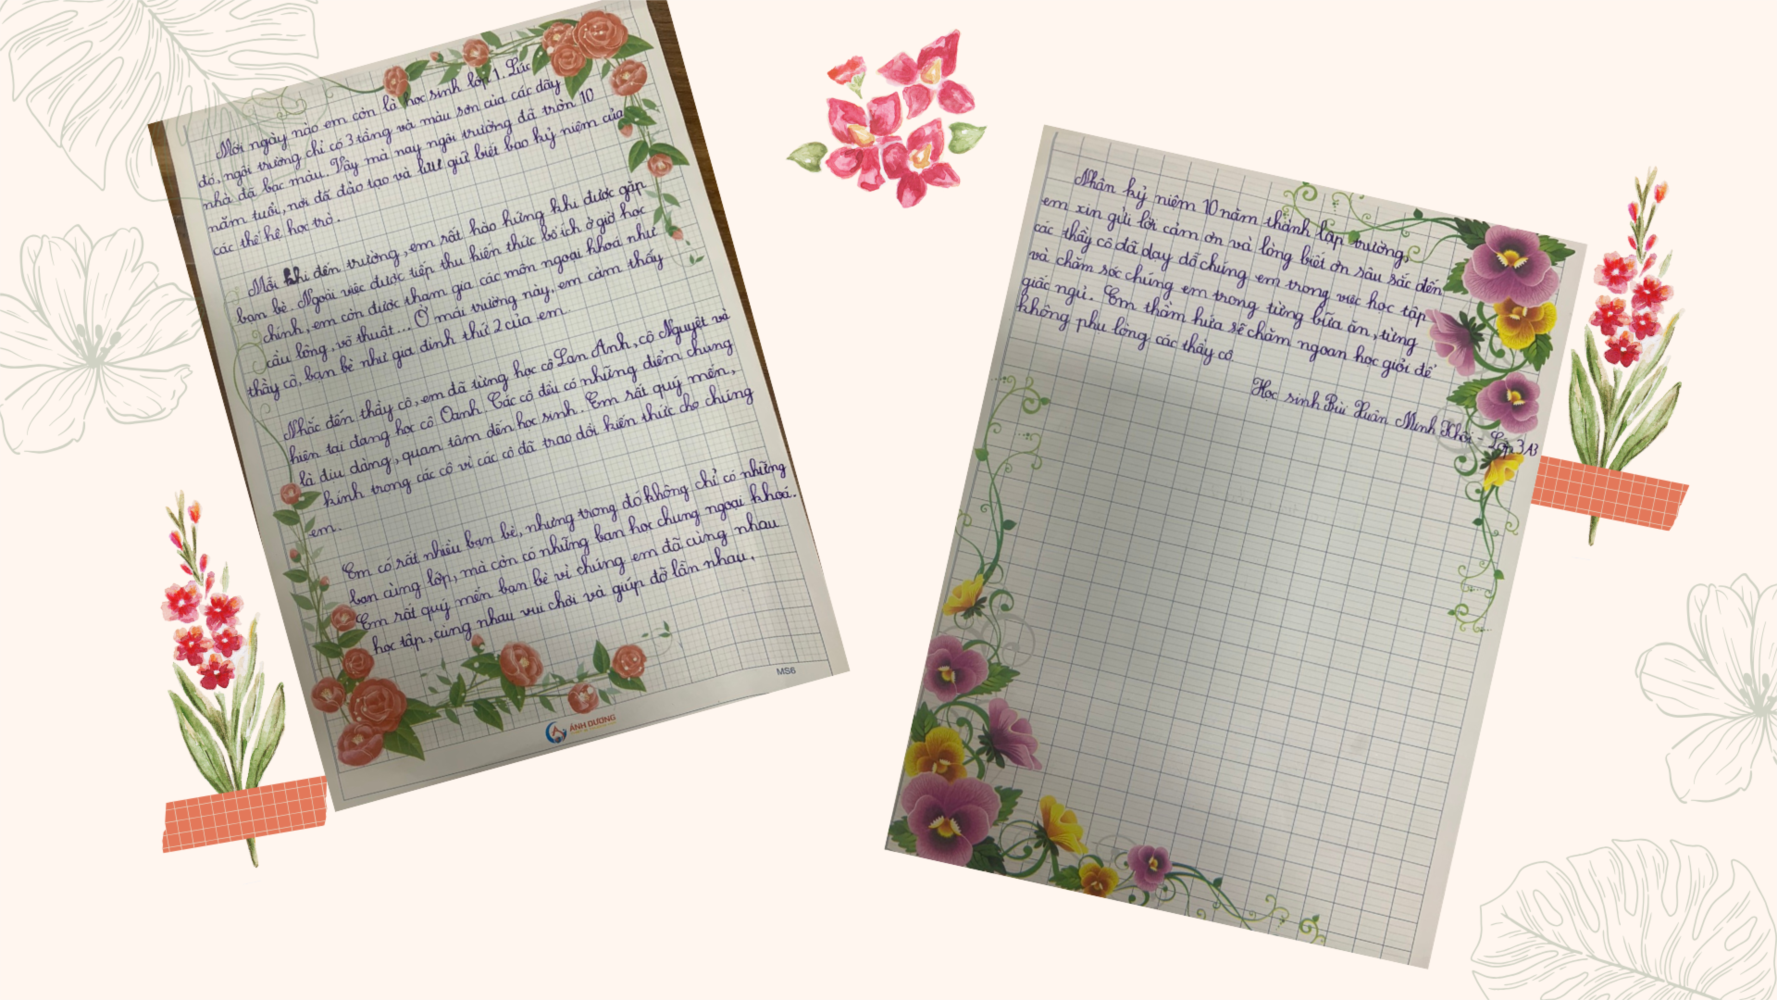 Mới ngày nào em còn là học sinh lớp 1. Lúc
đó, ngôi trường chỉ có 3 tầng và màu sơn của các dãy
nhà đã bạc màu. Vậy mà nay ngôi trường đã tròn 10
năm tuổi, nơi đã đào tạo và lưu giữ biết bao kỷ niệm của
các thế hệ học trò.
Mỗi khi đến trường, em rất hào hứng khi được gặp
bạn bè. Ngoài việc được tiếp thu kiến thức bổ ích ở giờ học
chính, em còn được tham gia các môn ngoại khoá như
cầu lông, võ thuật... Ở mái trường này, em cảm thấy
thầy cô, bạn bè như gia đình thứ 2 của em.
Nhắc đến thầy cô, em đã từng học cô Lan Anh, cô Nguyệt và
hiện tại đang học cô Oanh. Các cô đều có những điểm chung
là dịu dàng, quan tâm đến học sinh. Em rất quý mến,
kính trong các cô vì các cô đã trao dồi kiến thức cho chúng
em.
Em có rất nhiều bạn bè, nhưng trong đó không chỉ có những
bạn cùng lớp, mà còn có những bạn học chung ngoại khoá.
Em rất quý mến bạn bè vì chúng em đã cùng nhau
học tập, cùng nhau vui chơi và giúp đỡ lẫn nhau.
MS6
ÁNH DƯƠNG
Nhân kỷ niệm 10 năm thành lập trường,
em xin gửi lời cảm ơn và lòng biết ơn sâu sắc đến
các thầy cô đã dạy dỗ chúng em trong việc học tập
và chăm sóc chúng em trong từng bữa ăn, từng
giấc ngủ. Em thầm hứa sẽ chăm ngoan học giỏi để
không phụ lòng các thầy cô.
Học sinh Bùi Xuân Minh Khôi - Lớp 3A3